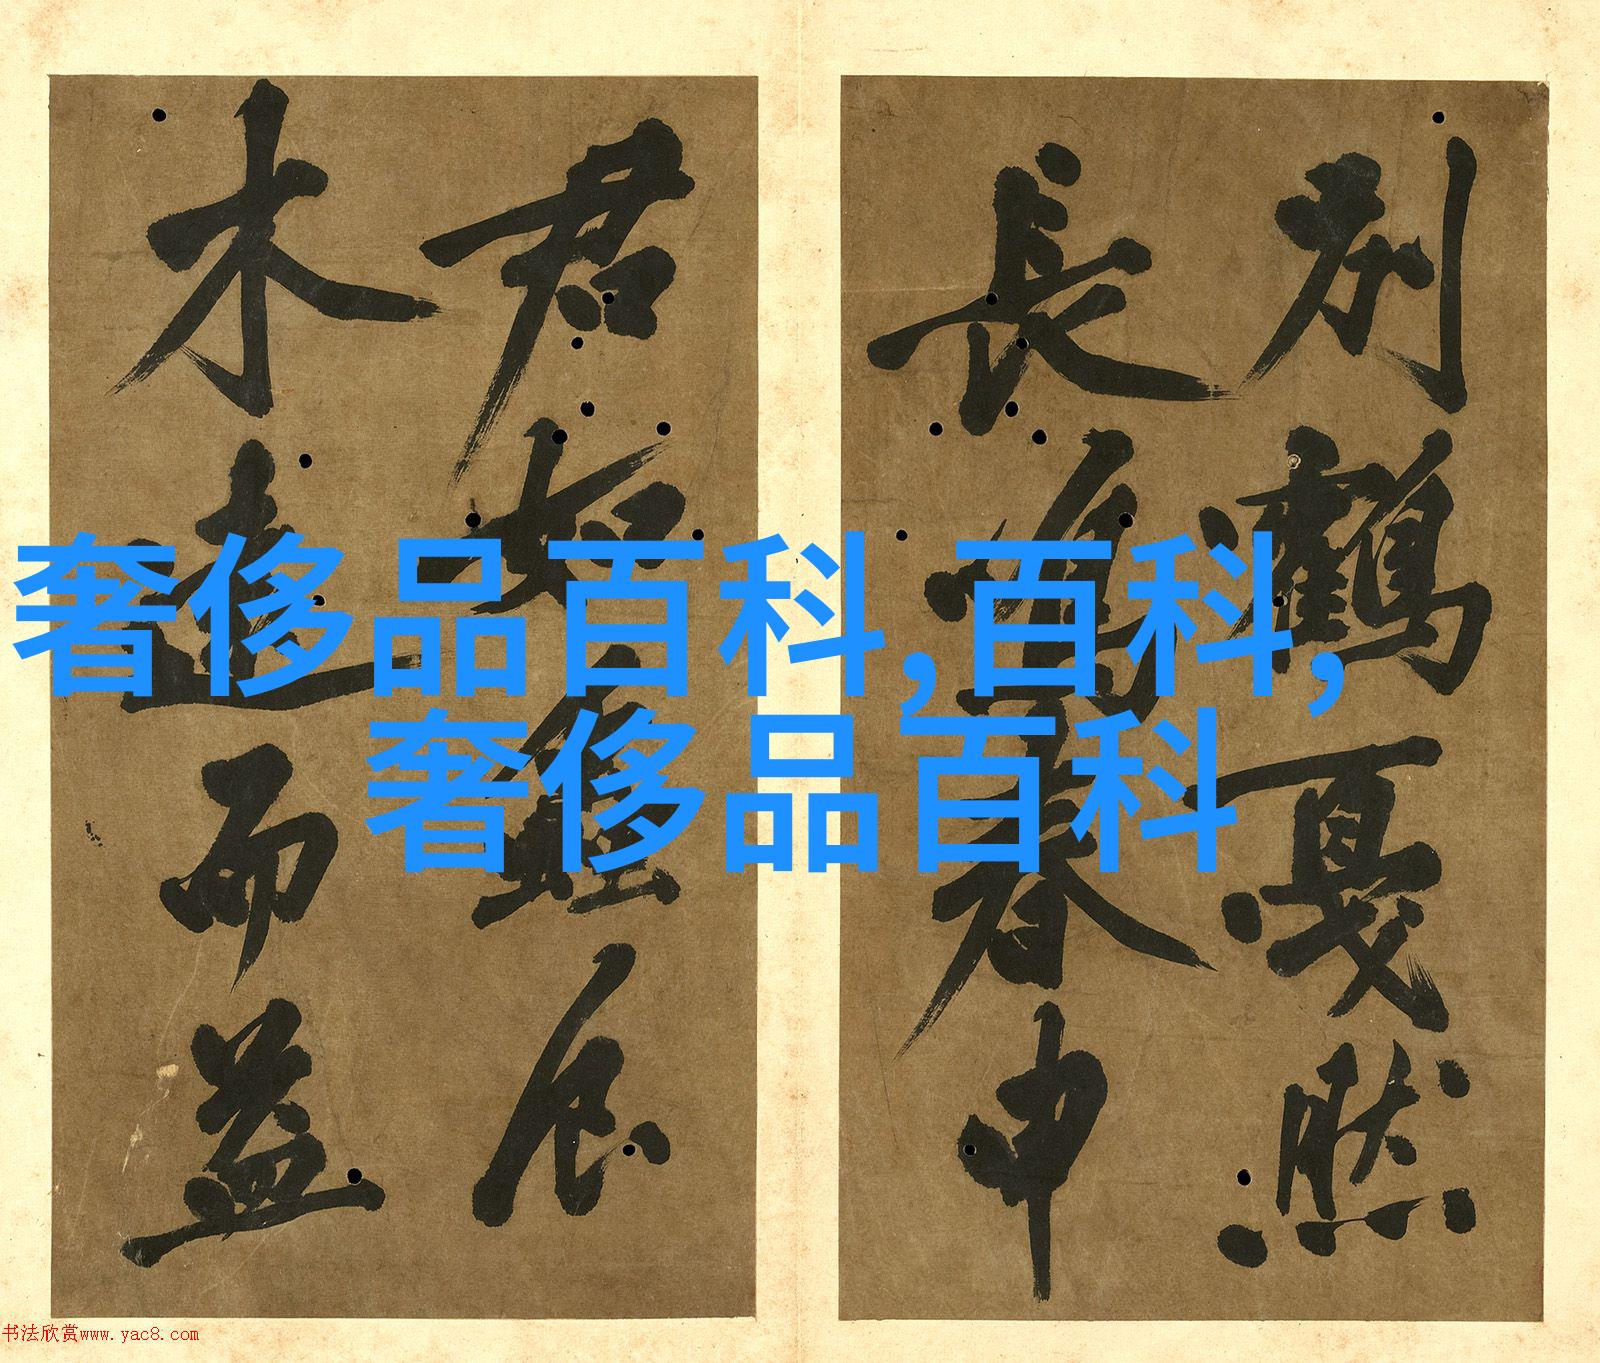 別鶴戛然
長唯春申
君如
木遠而益
奢侈品百科,百科,
奢侈品百科
书法欣赏www.yac8.com